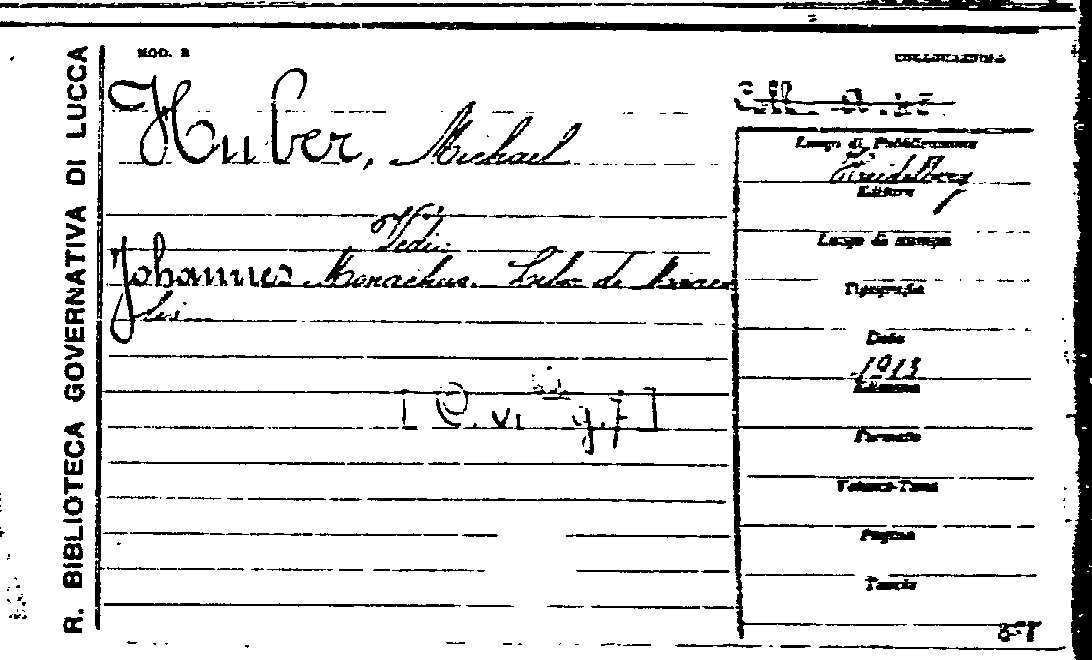 MOD. B
COLLOCAZIONE
R. BIBLIOTECA GOVERNATIVA DI LUCCA
Huber, Michael
Vedi:
Johannes Monachus. Liber de Miracu
lis
[ C. vi g.7 ]
Luogo di Pubblicazione
Heidelberg
Editore
Luogo di stampa
Tipografia
Data
1913
Edizione
Formato
Volumi-Tomi
Pagine
Tavole